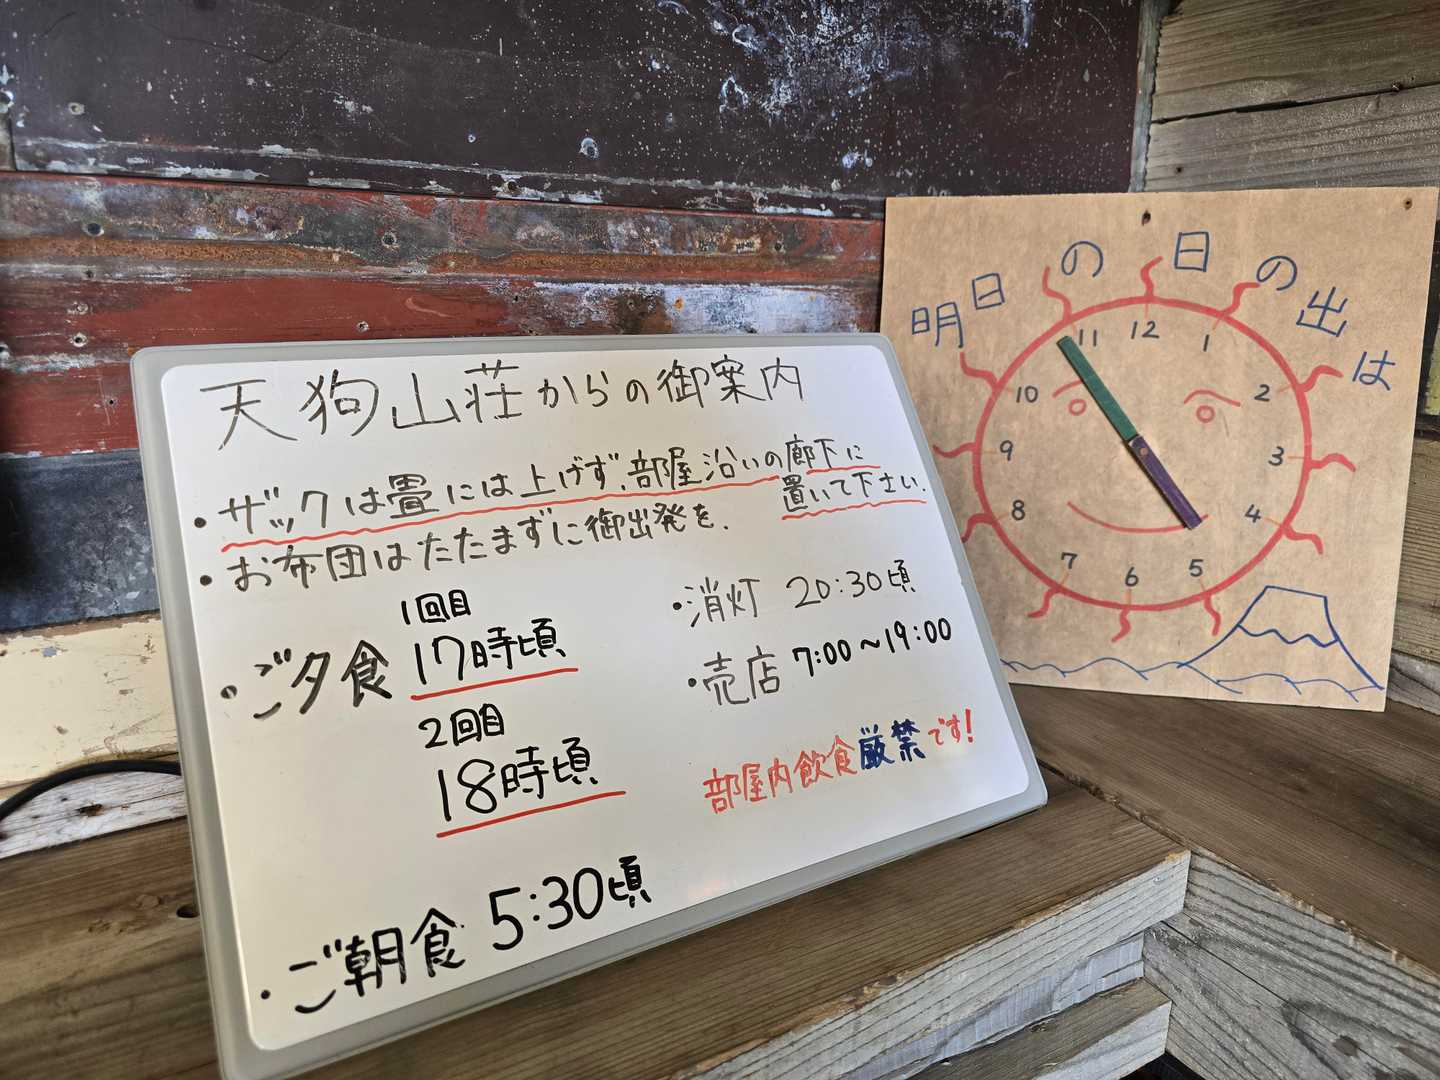 天狗山荘からの御案内
・ザックは畳には上げず、部屋沿いの廊下に
置いて下さい.
・お布団はたたまずに御出発を.
・ご夕食
1回目
17時頃
2回目
18時頃
・ご朝食 5:30頃
・消灯 20:30頃
・売店 7:00～19:00
部屋内飲食厳禁です!
明日の日の出は
12
1
2
3
4
5
6
7
8
9
10
11